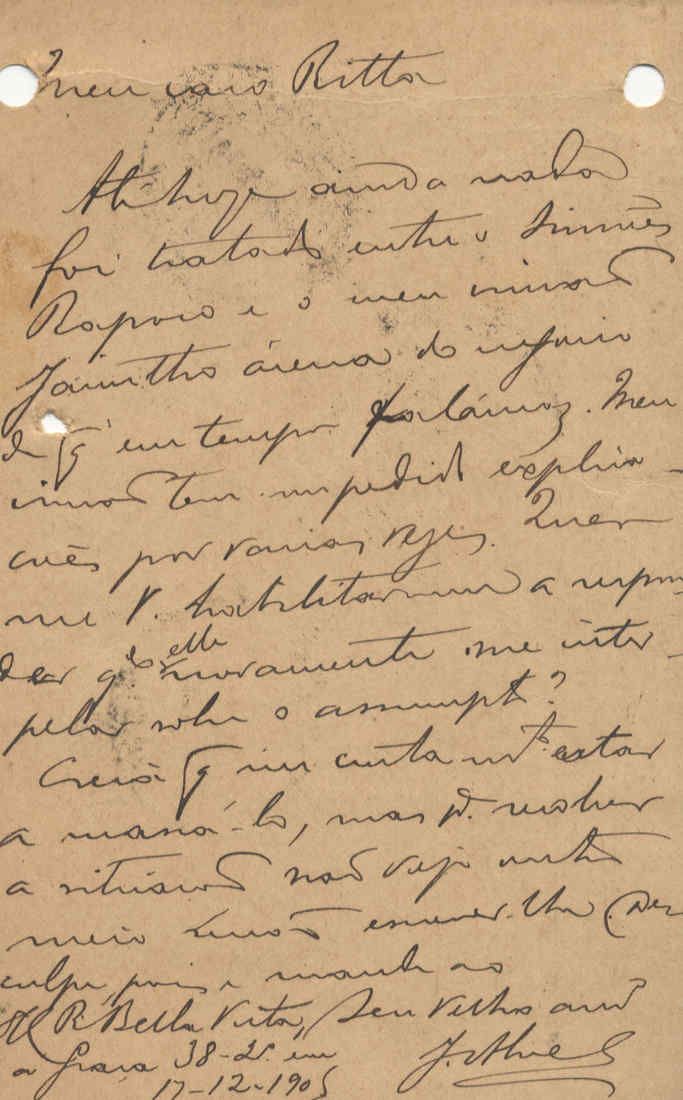 Meu caro Ritta
Até hoje ainda nada
foi tratado entre o Simões
Raposo e o meu irmão
Jacintho ácerca do negocio
de q em tempo falámos. Meu
irmão tem-me pedido explica-
ções por varias vezes. Quer
me V. habilitar-me a respon-
der qdo elle novamente me inter-
pelar sobre o assumpto?
Creia q me custa mto estar
a massá-lo, mas pa. resolver
a situação não vejo outro
meio senão escrever-lhe. Des-
culpe, pois e mande ao
R. Bella Vista, Seu velho amo
a Graça 38-2º. em J. Alves
17-12-1905